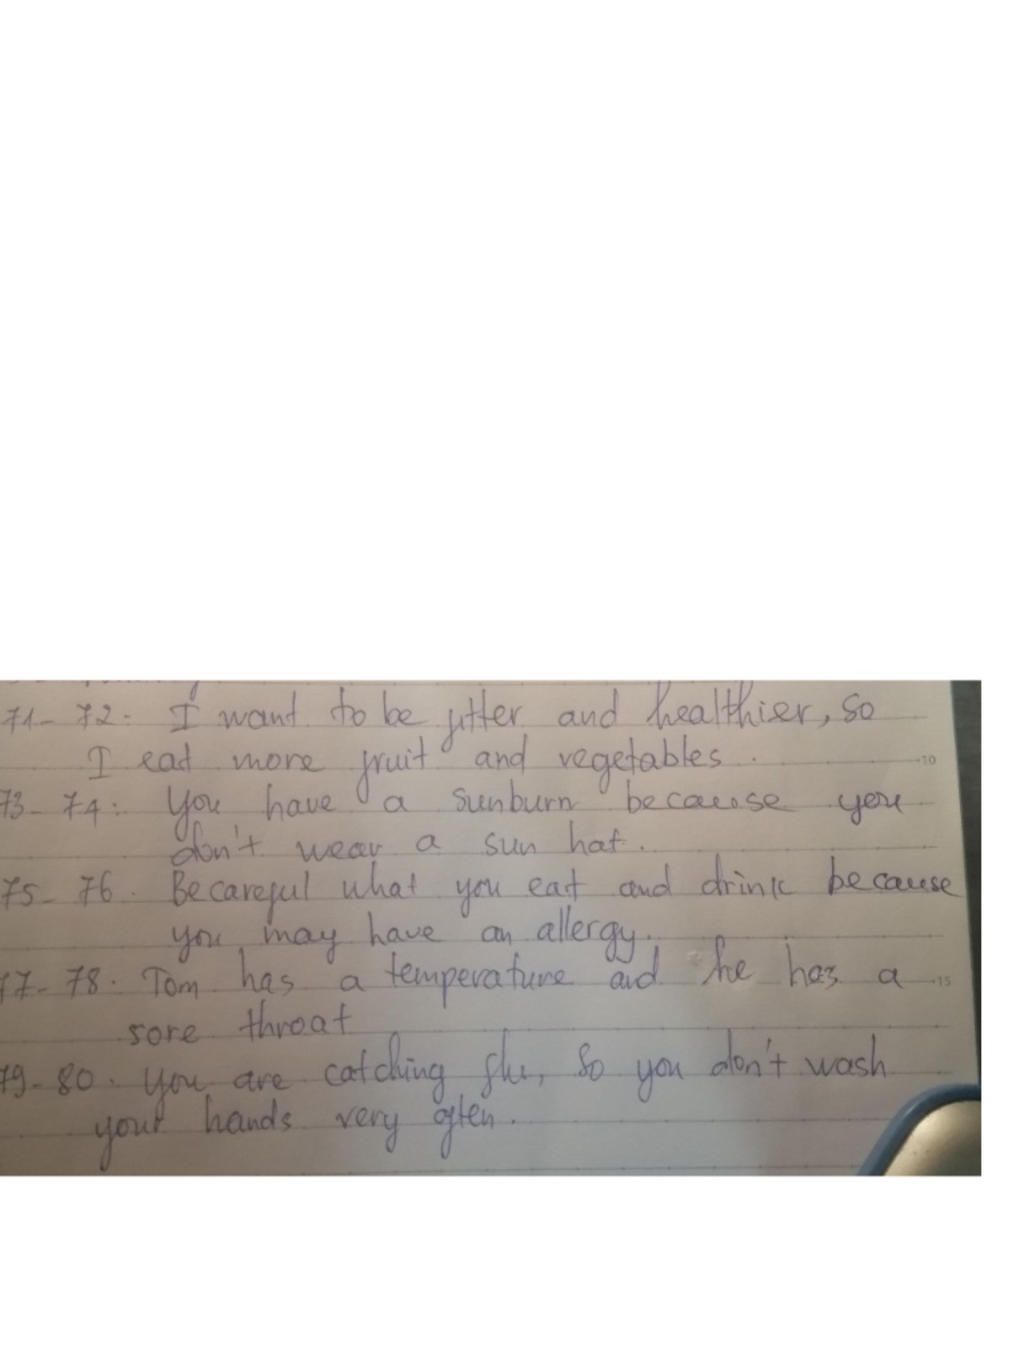 71- 72: I want to be fitter and healthier, so
I eat more fruit and vegetables.
73- 74: You have a sunburn because you
don't wear a sun hat.
75- 76. Be careful what you eat and drink because
you may have an allergy.
77- 78. Tom has a temperature and he has a
sore throat
79- 80. You are catching flu, so you don't wash
your hands very often.